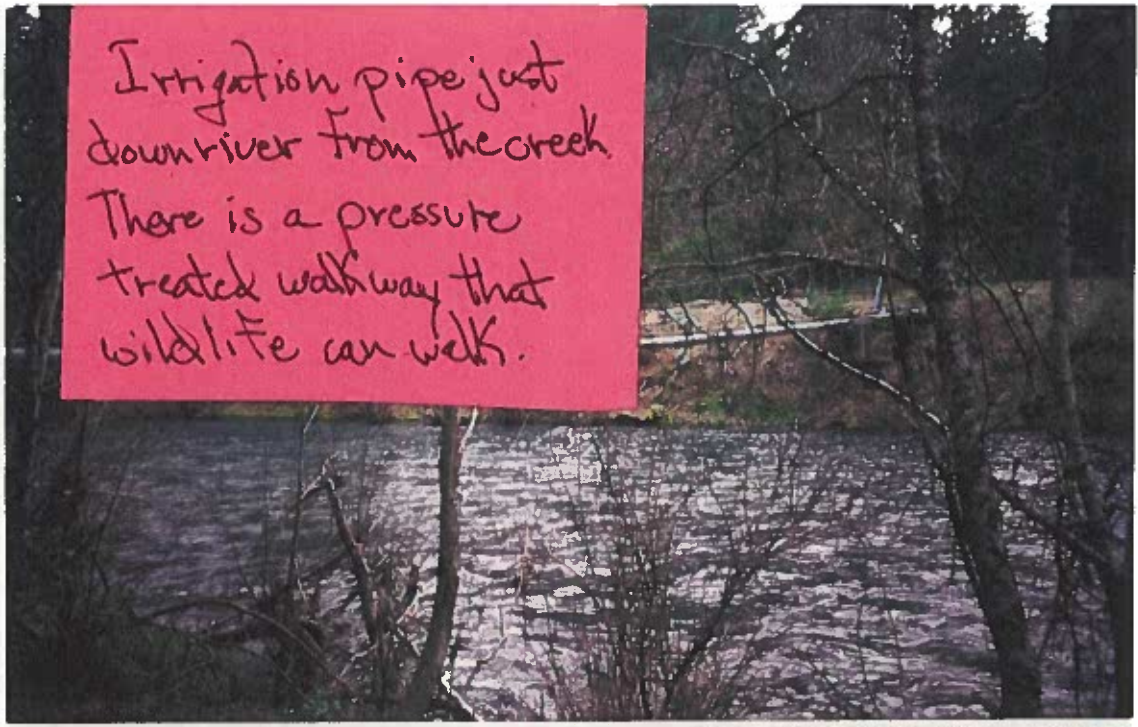 Irrigation pipe just
downriver from the creek.
There is a pressure
treated walkway that
wildlife can walk.